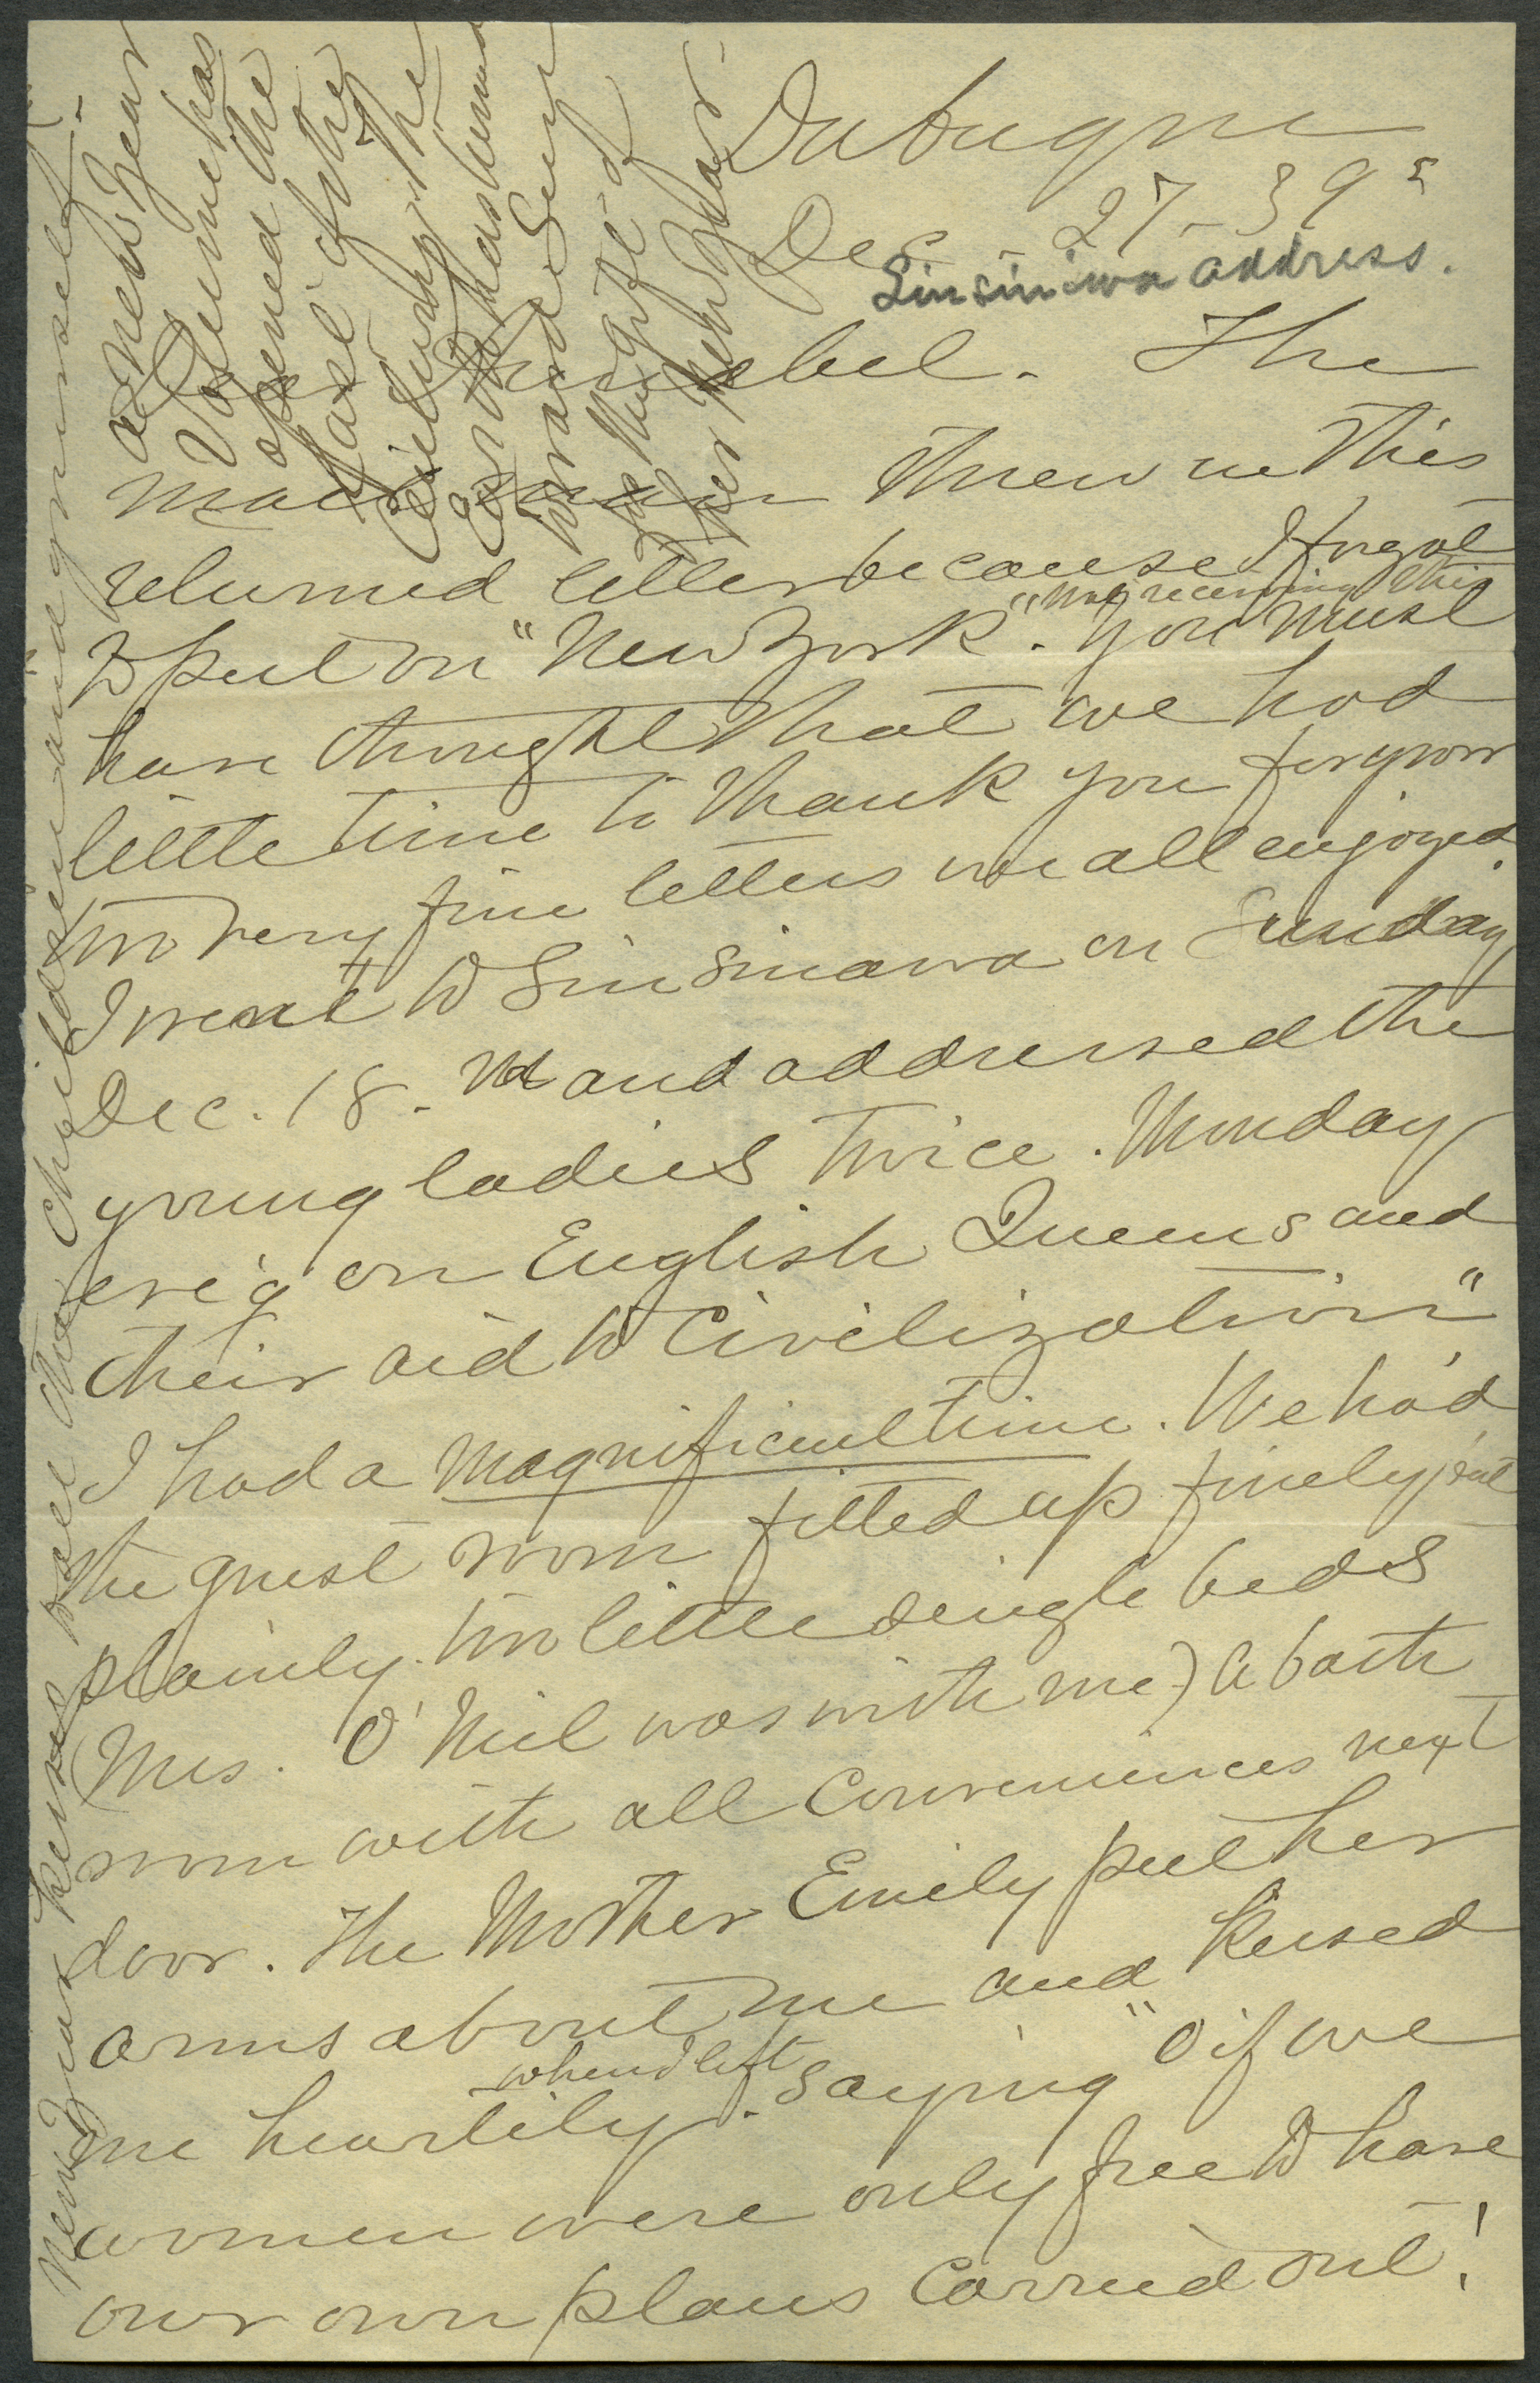 Dubuque
Dec - 27 - 39
Sinsiniwa address.
Dear Annabel. The
mail man threw in this
returned letter because I forgot
to put on "New York". "not receiving this You must
have thought that we had
little time to thank you for your
two very fine letters we all enjoyed.
I went to Sinsinawa on Sunday
Dec. 18. and addressed the
young ladies twice. Monday
eve'g on English Queens and
their aid to Civilization"
I had a magnificent time. We had
the guest room fitted up finely but
plainly. two little single beds
(Mrs. O'Neil was with me) a bath
room with all conveniences next
door. The Mother Emily put her
arms about me and kissed
me heartily when I left. saying "O if we
women were only free to have
our own plans carried out!
a New Year
Volume has
opened the
last of the
Century the
Earth has hummed
around Sun
the Night of
New Year
New Year kisses to all the children and yourself.